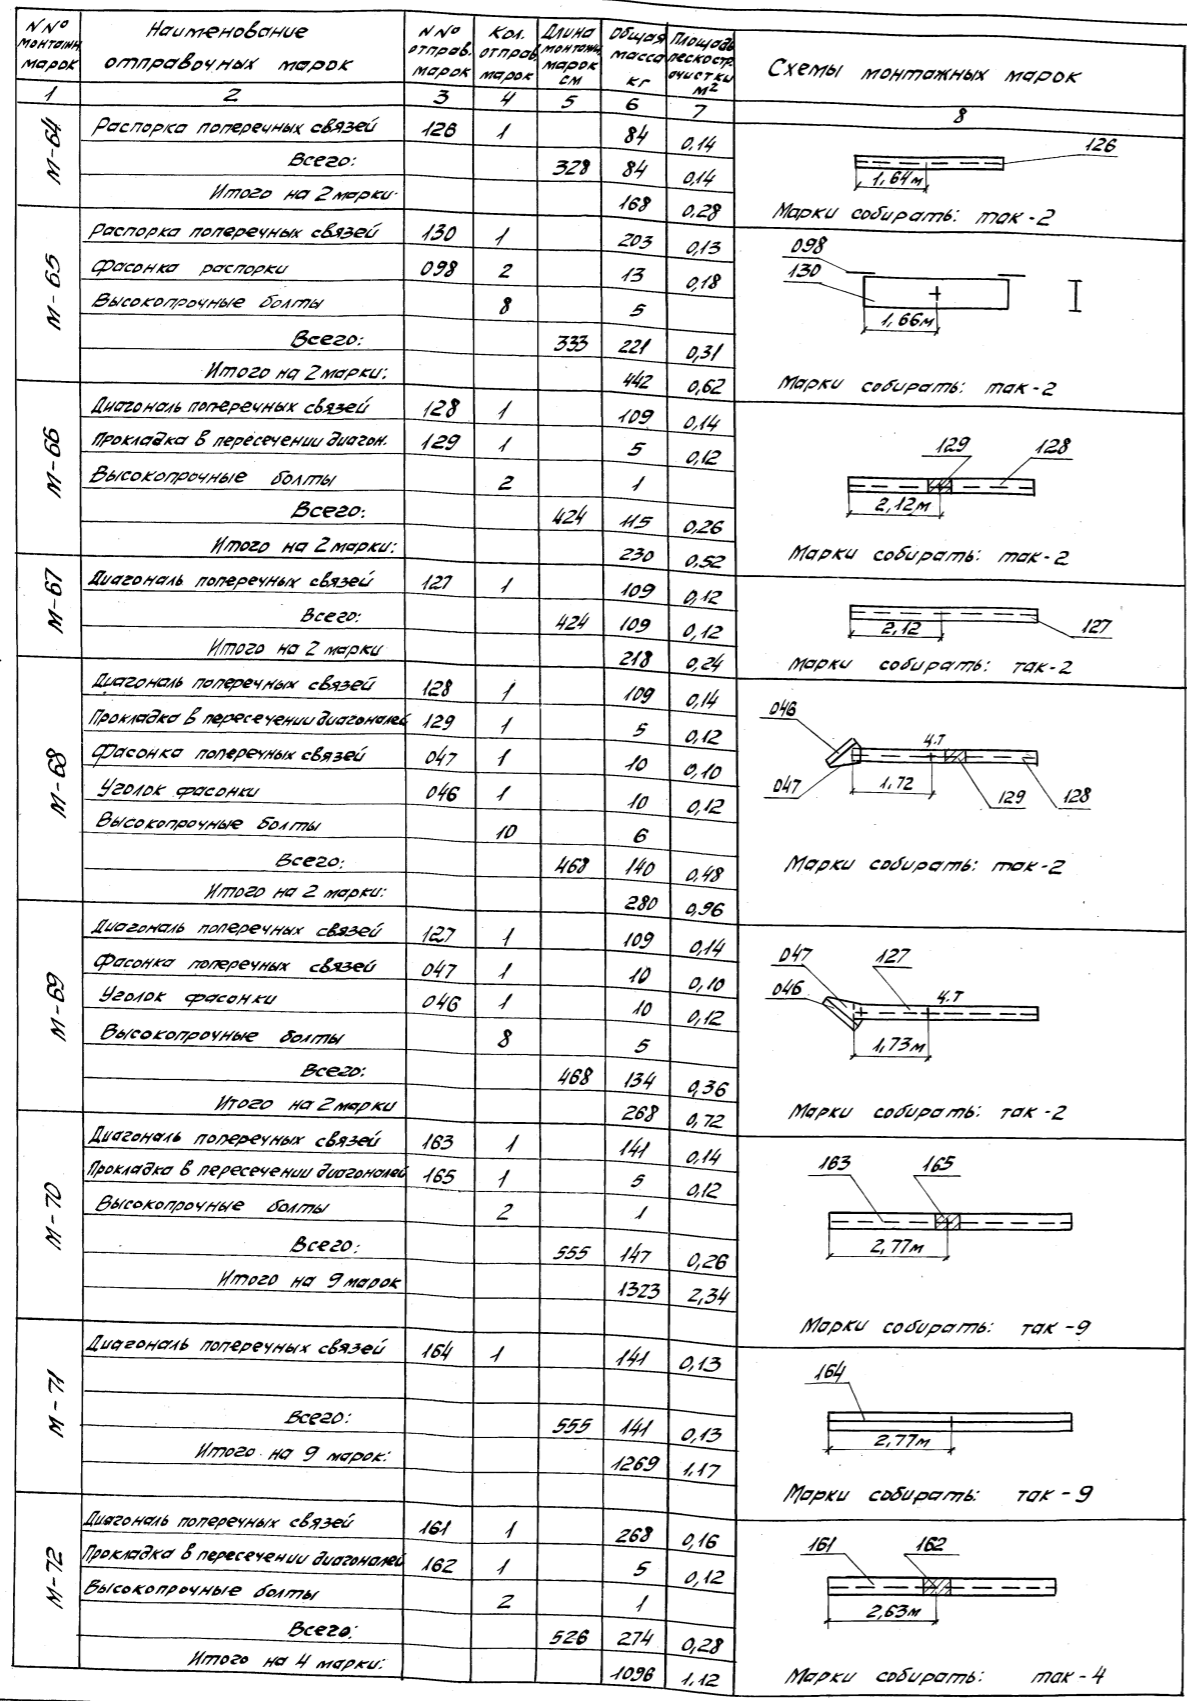 N Nº монтажн. марок | Наименование отправочных марок | N Nº отправ. марок | Кол. отправ. марок | Длина монтажн. марок см | Общая масса кг | Площадь пескостр. очистки м² | Схемы монтажных марок
1 | 2 | 3 | 4 | 5 | 6 | 7 | 8
М-64
Распорка поперечных связей 126 1 84 0,14
Всего: 328 84 0,14
Итого на 2 марки: 168 0,28
126
1,64м
Марки собирать: так-2
М-65
Распорка поперечных связей 130 1 203 0,13
Фасонка распорки 098 2 13 0,18
Высокопрочные болты 8 5
Всего: 333 221 0,31
Итого на 2 марки: 442 0,62
098
130
1,66м
Марки собирать: так-2
М-66
Диагональ поперечных связей 128 1 109 0,14
Прокладка в пересечении диагон. 129 1 5 0,12
Высокопрочные болты 2 1
Всего: 424 115 0,26
Итого на 2 марки: 230 0,52
129 128
2,12м
Марки собирать: так-2
М-67
Диагональ поперечных связей 127 1 109 0,12
Всего: 424 109 0,12
Итого на 2 марки 218 0,24
2,12 127
Марки собирать: так-2
М-68
Диагональ поперечных связей 128 1 109 0,14
Прокладка в пересечении диагоналей 129 1 5 0,12
Фасонка поперечных связей 047 1 10 0,10
Уголок фасонки 046 1 10 0,12
Высокопрочные болты 10 6
Всего: 468 140 0,48
Итого на 2 марки: 280 0,96
046
ц.т
047 1,72 129 128
Марки собирать: так-2
М-69
Диагональ поперечных связей 127 1 109 0,14
Фасонка поперечных связей 047 1 10 0,10
Уголок фасонки 046 1 10 0,12
Высокопрочные болты 8 5
Всего: 468 134 0,36
Итого на 2 марки 268 0,72
047 127
046 ц.т
1,73м
Марки собирать: так-2
М-70
Диагональ поперечных связей 163 1 141 0,14
Прокладка в пересечении диагоналей 165 1 5 0,12
Высокопрочные болты 2 1
Всего: 555 147 0,26
Итого на 9 марок 1323 2,34
163 165
2,77м
Марки собирать: так-9
М-71
Диагональ поперечных связей 164 1 141 0,13
Всего: 555 141 0,13
Итого на 9 марок: 1269 1,17
164
2,77м
Марки собирать: так-9
М-72
Диагональ поперечных связей 161 1 268 0,16
Прокладка в пересечении диагоналей 162 1 5 0,12
Высокопрочные болты 2 1
Всего: 526 274 0,28
Итого на 4 марки: 1096 1,12
161 162
2,63м
Марки собирать: так-4